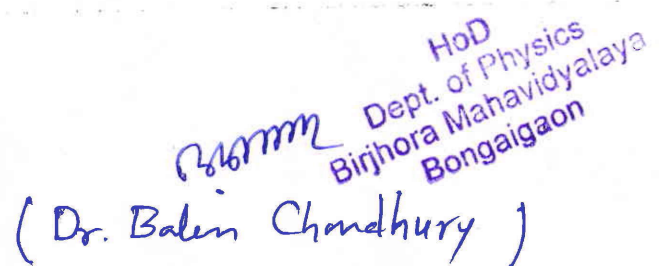 HoD
Dept. of Physics
Birjhora Mahavidyalaya
Bongaigaon
( Dr. Balen Choudhury )